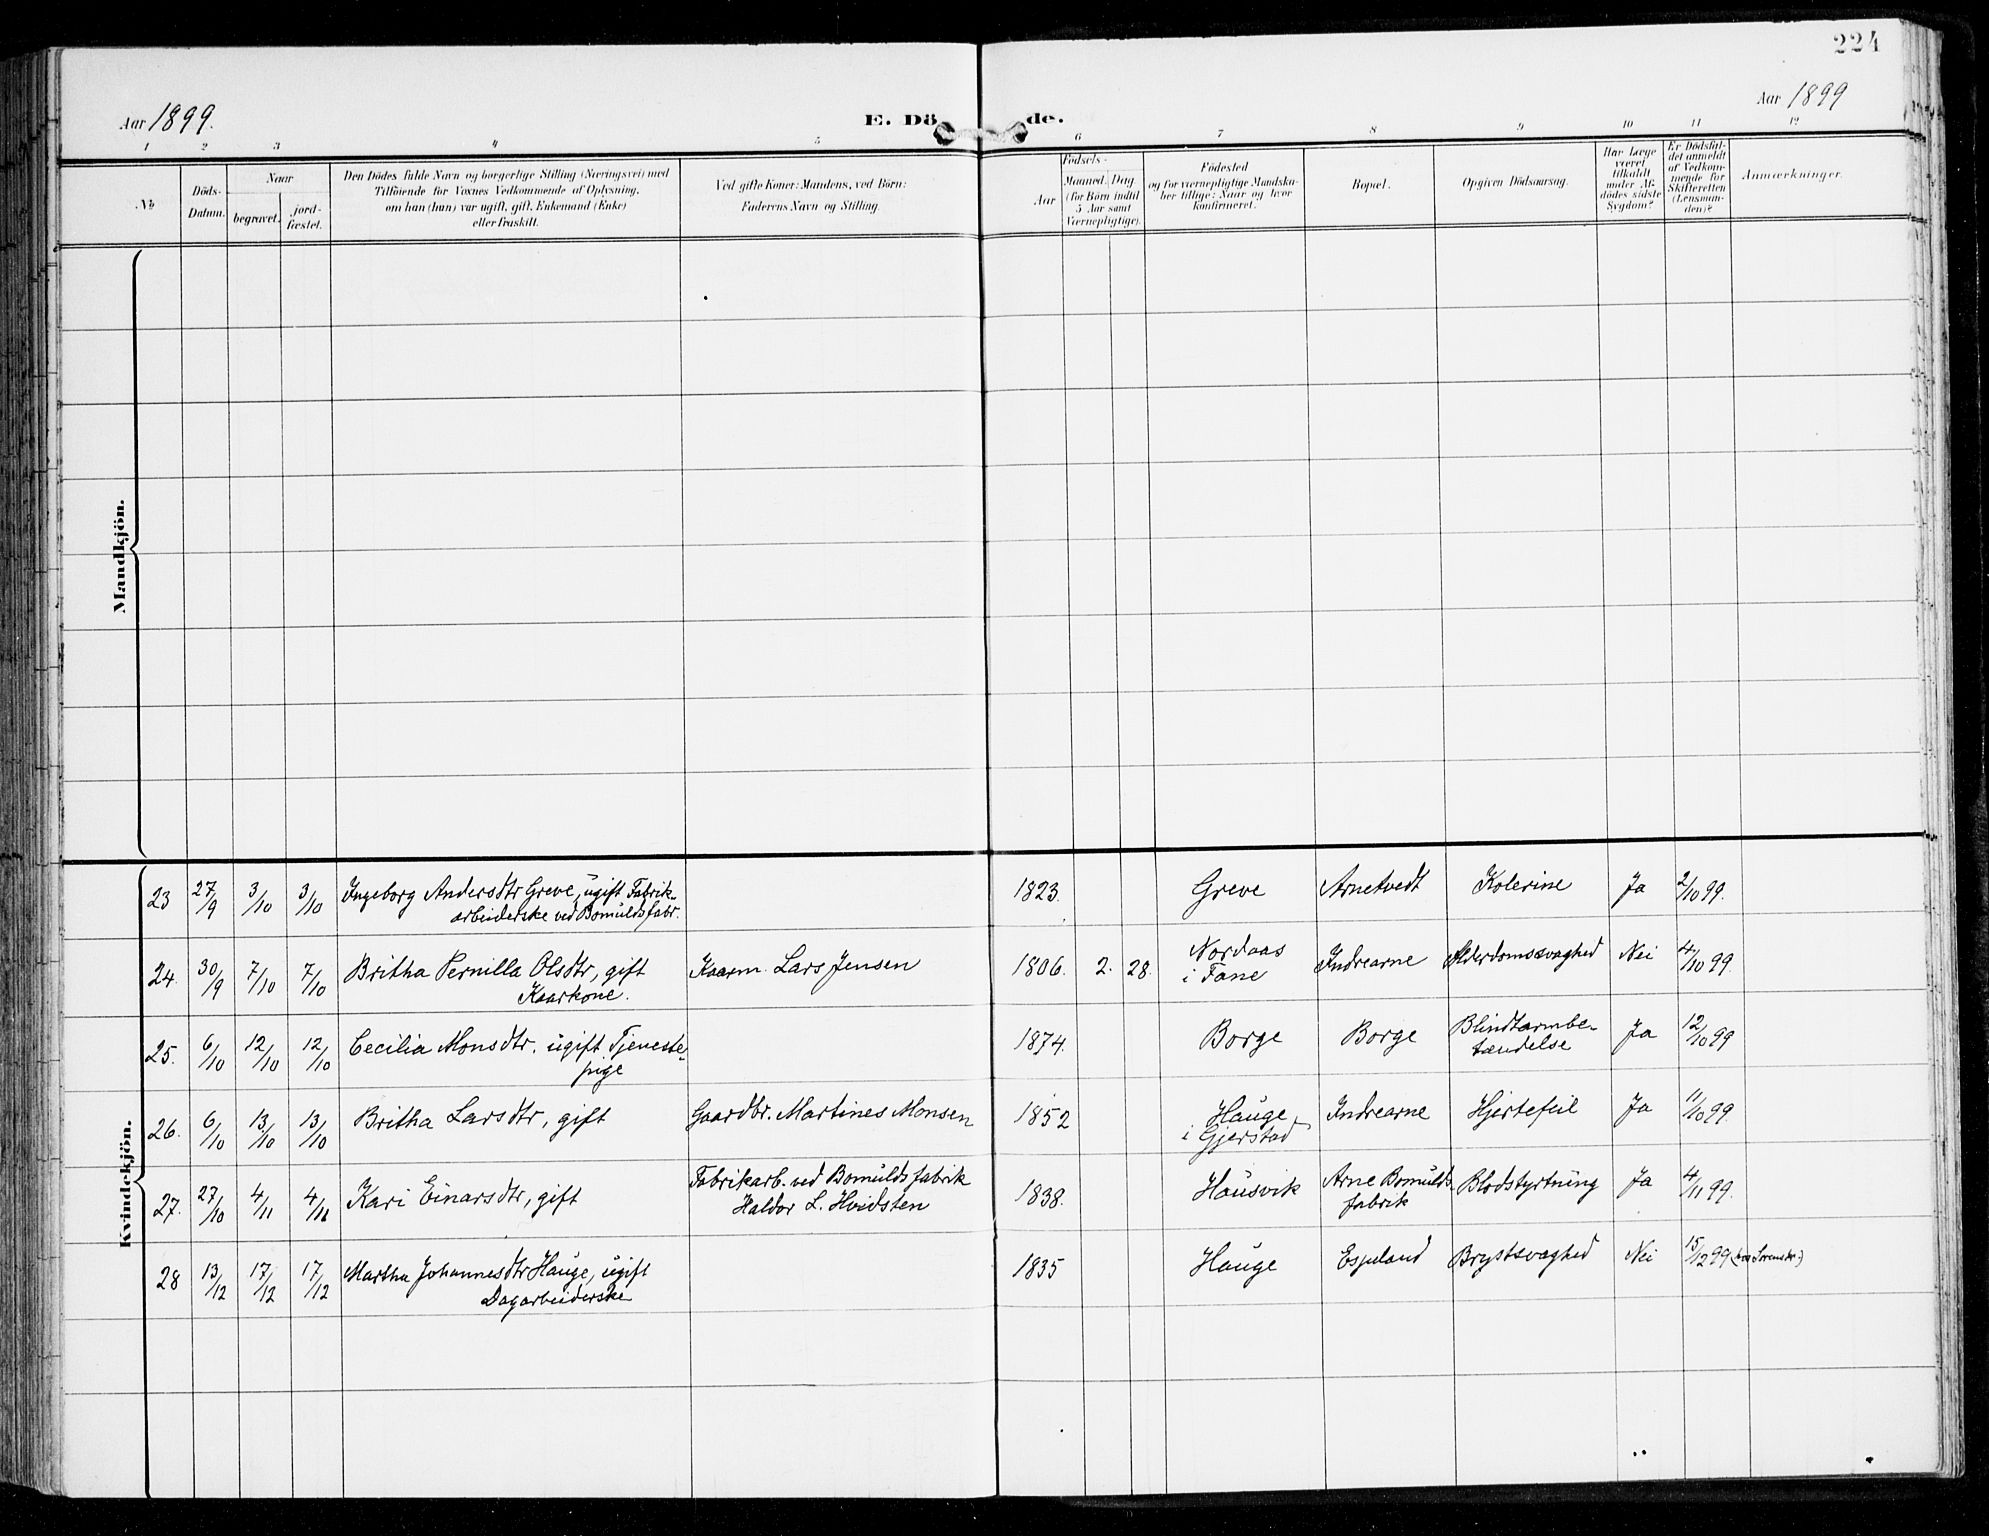 224
Aar 1899.
E. Döde.
Aar 1899
1 2 3 4 5 6 7 8 9 10 11 12
No
Döds-
Datum.
Naar
begravet.
jord-
fæstet.
Den Dödes fulde Navn og borgerlige Stilling (Næringsvei) med
Tilföiende for Voxnes Vedkommende af Oplysning,
om han (hun) var ugift, gift, Enkemand (Enke)
eller fraskilt.
Ved gifte Koner: Mandens, ved Börn:
Faderens Navn og Stilling.
Födsels-
Aar
Maaned. Dag.
(for Börn indtil
5 Aar samt
Værnepligtige).
Födested
og for værnepligtige Mandska-
ber tillige: Naar og hvor
konfirmeret.
Bopæl.
Opgiven Dödsaarsag.
Har Læge
været
tilkaldt
under Af-
dödes sidste
Sygdom?
Er Dödsfal-
det anmeldt
af Vedkom-
mende for
Skifteretten
(Lensman-
den)?
Anmærkninger.
Mandkjön.
Kvindekjön.
23 27/9 3/10 3/10 Ingeborg Andersdtr Greve, ugift Fabrik-
arbeiderske ved Bomuldsfabr.
1823. Greve Arnetvedt Kolerine Ja 2/10 99.
24. 30/9 7/10 7/10 Britha Pernilla Olsdtr, gift
Kaarkone.
Kaarm. Lars Jensen 1806. 2. 28. Nordaas
i Fane
Indrearne Alderdomssvaghed Nei 4/10 99.
25. 6/10 12/10 12/10 Cecilia Monsdtr. ugift Tjeneste-
pige
1874. Borge Borge Blindtarmbe-
tændelse
Ja 12/10 99
26. 6/10 13/10 13/10 Britha Larsdtr, gift Gaardbr. Martines Monsen 1852 Hauge
i Gjerstad
Indrearne Hjertefeil Ja 11/10 99.
27. 27/10 4/11 4/11 Kari Einarsdtr, gift Fabrikarb. ved Bomuldsfabrik
Haldor L. Hvidsten
1838. Hausvik Arne Bomulds-
fabrik
Blodstyrtning Ja 4/11 99.
28 13/12 17/12 17/12 Martha Johannesdtr Hauge, ugift
Dagarbeiderske
1835 Hauge Espeland Brystsvaghed Nei 15/12 99